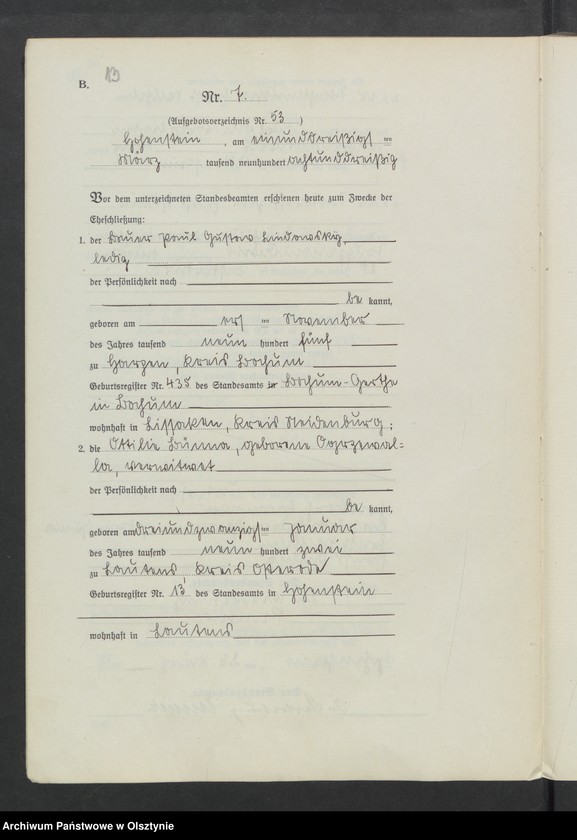 B. 13
Nr. 7.
(Aufgebotsverzeichnis Nr. 53)
Hohenstein, am einunddreißigsten
März tausend neunhundert achtunddreißig
Vor dem unterzeichneten Standesbeamten erschienen heute zum Zwecke der
Eheschließung:
1. der Bauer Paul Gustav
ledig
der Persönlichkeit nach
be kannt,
geboren am ersten November
des Jahres tausend neun hundert fünf
zu Harpen, Kreis Bochum
Geburtsregister Nr. 438 des Standesamts Bochum-Gerthe
in Bochum
wohnhaft in Lissaken, Kreis Neidenburg;
2. die Ottilie geborene
verwitwet
der Persönlichkeit nach
be kannt,
geboren am dreiundzwanzigsten Januar
des Jahres tausend neun hundert zwei
zu Lautens Kreis Osterode
Geburtsregister Nr. 13 des Standesamts in Hohenstein
wohnhaft in Lautens
Archiwum Państwowe w Olsztynie